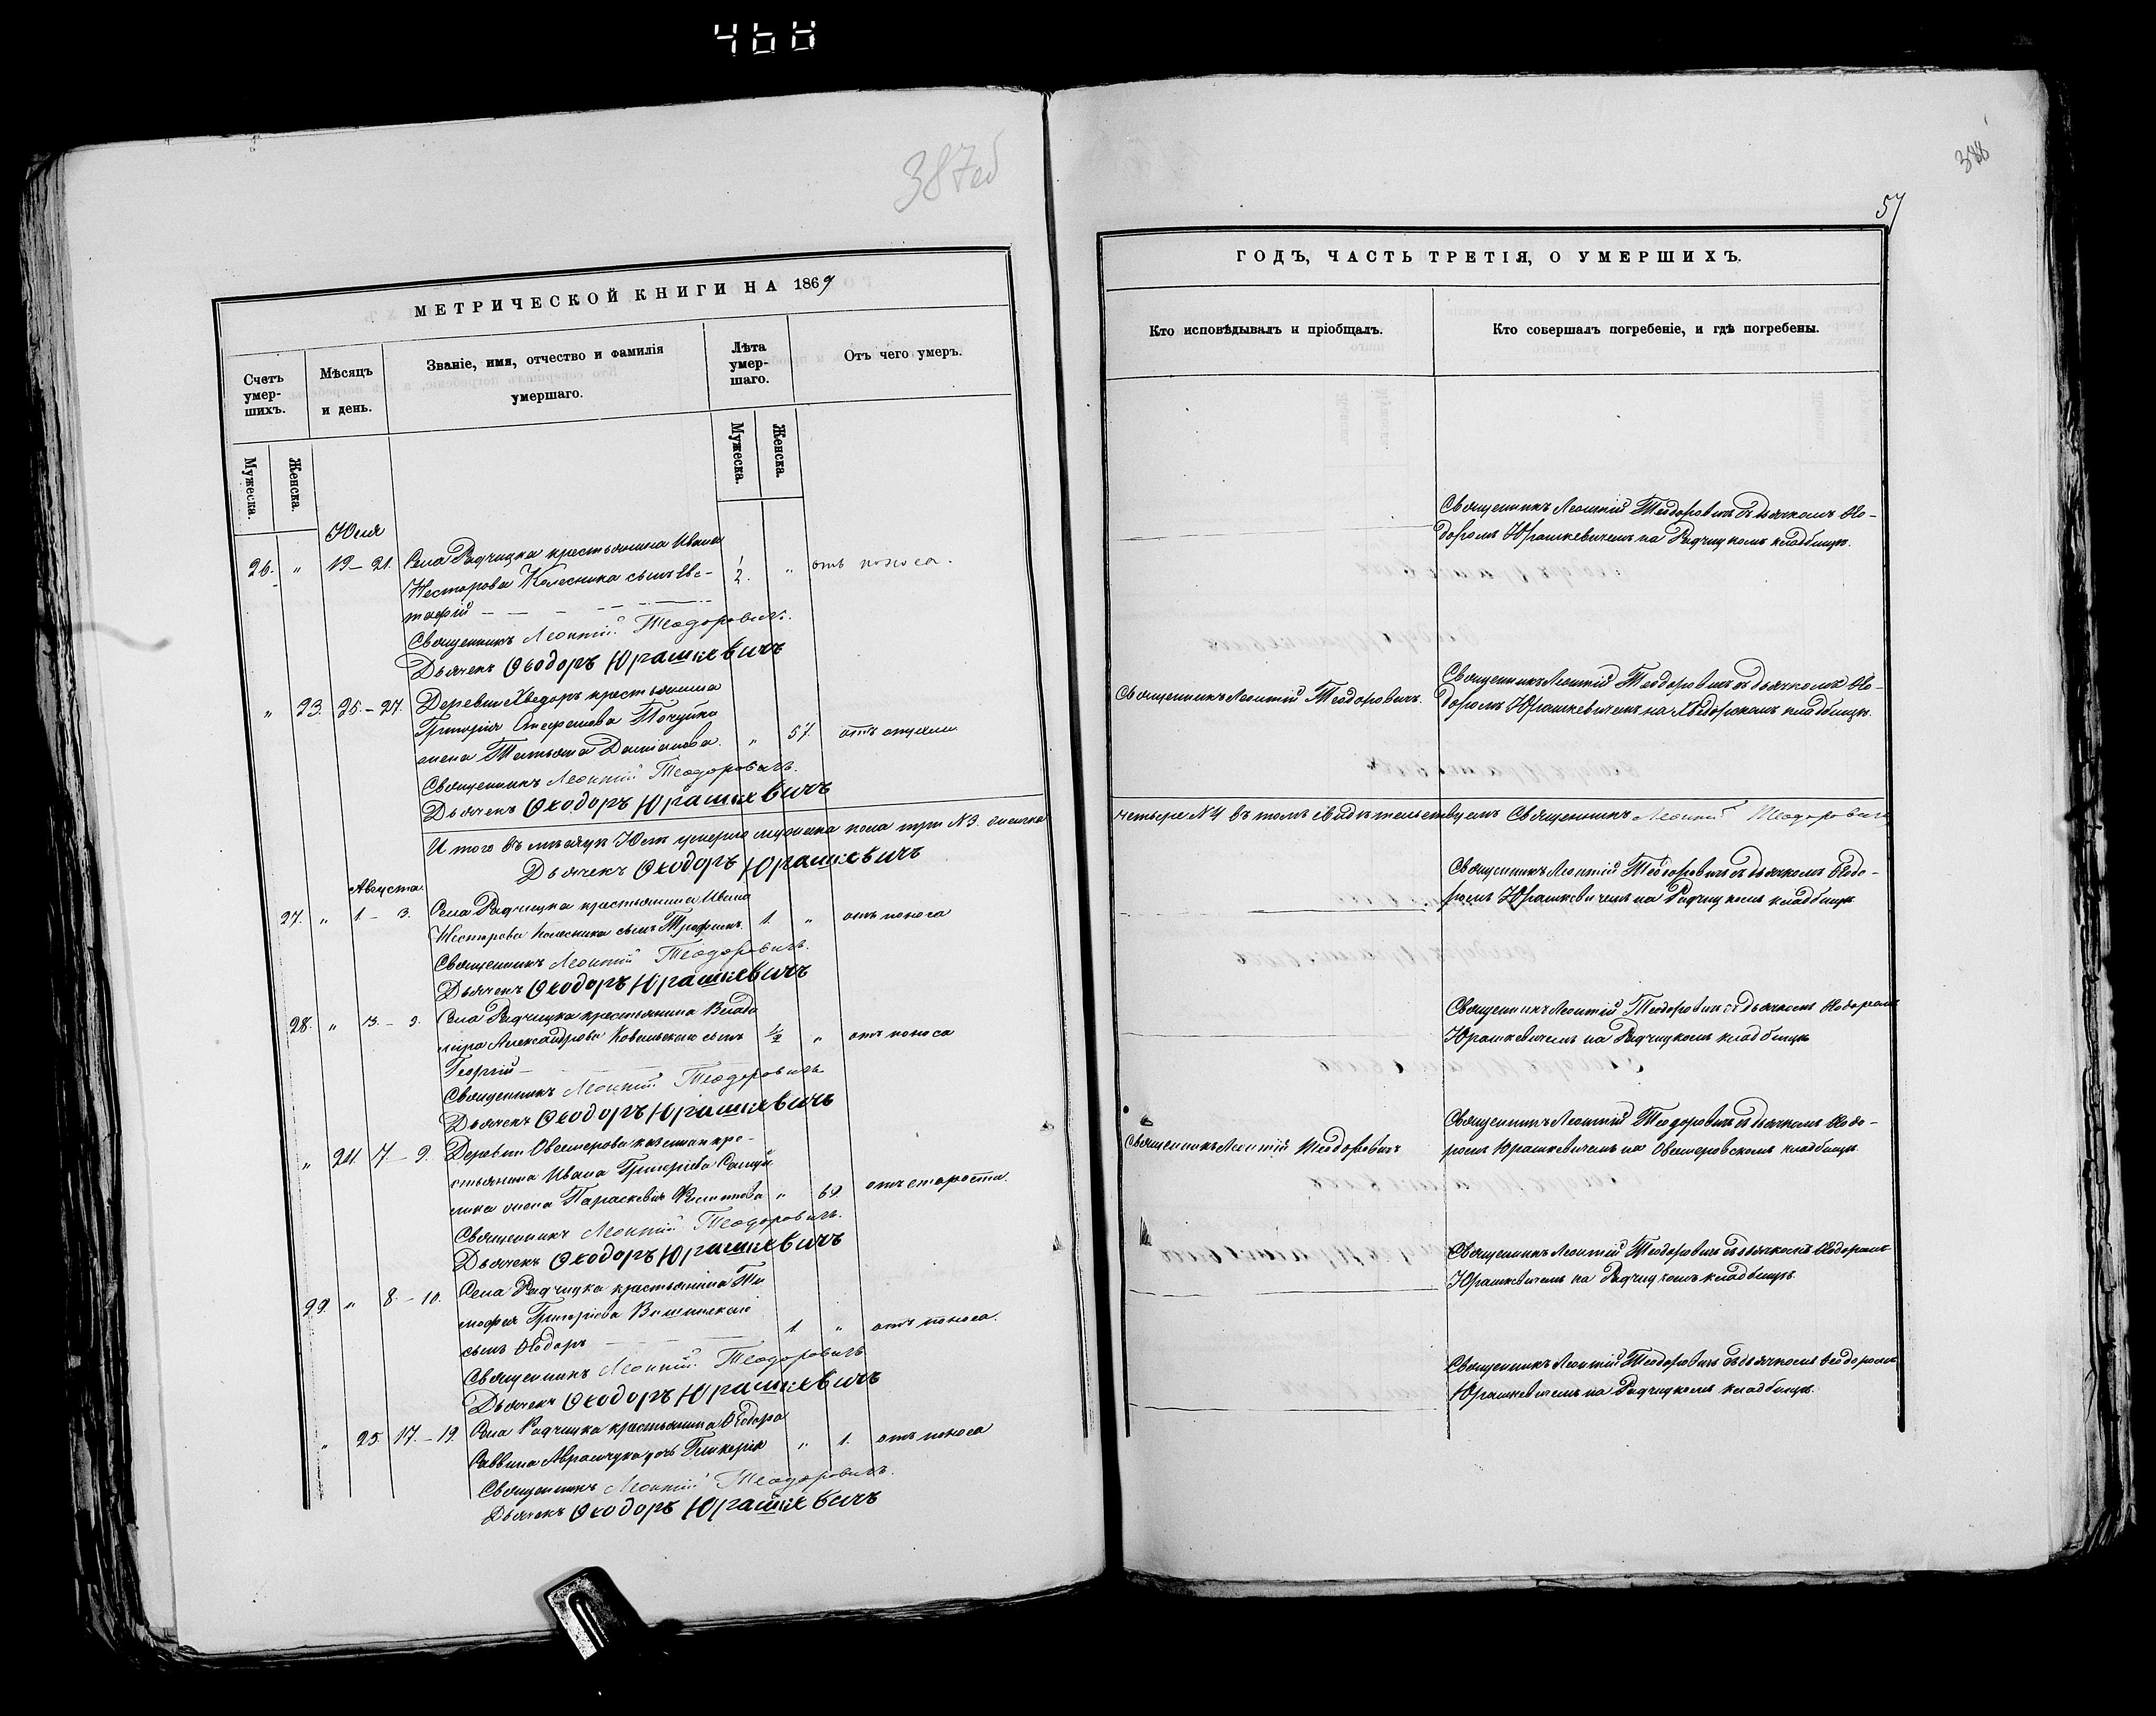 468
387об
МЕТРИЧЕСКОЙ КНИГИ НА 1869
Счетъ умер-шихъ.
Мѣсяцъ и день.
Званіе, имя, отчество и фамилія умершаго.
Лѣта умер-шаго.
Отъ чего умеръ.
Мужеска.
Женска.
Мужеска.
Женска.
Юля
26. " 19 – 21. Села Радчицка крестьянина Ивана
Несторова Колесника сынъ Евс- 1/2. " отъ поноса.
тафій
Священникъ Леонтій Теодоровичъ.
Дьячекъ Ѳеодоръ Юрашкевичъ
" 23. 25. – 27. Деревни Хведоръ крестьянина
Григорія
жена Татьяна Даміанова. " 57. отъ опухли
Священникъ Леонтій Теодоровичъ.
Дьячекъ Ѳеодоръ Юрашкевичъ
И того въ мѣсяцѣ Юлѣ умерло мужеска пола три №3. женска
Дьячекъ Ѳеодоръ Юрашкевичъ
Августа
27. " 1 – 3. Села Радчицка крестьянина Ивана
Несторова Колесника сынъ Трофимъ. 1. " отъ поноса
Священникъ Леонтій Теодоровичъ.
Дьячекъ Ѳеодоръ Юрашкевичъ
28. " – Села Радчицка крестьянина Влади
мира Александрова сынъ 1/2 " отъ поноса
Георгій
Священникъ Леонтій Теодоровичъ
Дьячекъ Ѳеодоръ Юрашкевичъ
" 24 7 – 9. Деревни Овсемерова казеннаго кре-
стьянина Ивана Григоріева
жена Параскевія " 69. отъ старости.
Священникъ Леонтій Теодоровичъ.
Дьячекъ Ѳеодоръ Юрашкевичъ
29. " 8. – 10. Села Радчицка крестьянина Ти
мофея Григоріева
сынъ Ѳеодоръ 1. " отъ поноса.
Священникъ Леонтій Теодоровичъ
Дьячекъ Ѳеодоръ Юрашкевичъ
" 25 17. – 19. Села Радчицка крестьянина Ѳеодора
Саввина дочь Гликерія " 1. отъ поноса
Священникъ Леонтій Теодоровичъ.
Дьячекъ Ѳеодоръ Юрашкевичъ
388
57
ГОДЪ, ЧАСТЬ ТРЕТІЯ, О УМЕРШИХЪ.
Кто исповѣдывалъ и пріобщалъ.
Кто совершалъ погребеніе, и гдѣ погребены.
Священникъ Леонтій Теодоровичъ съ дьячкомъ Ѳео-
доромъ Юрашкевичемъ на Радчицкомъ кладбищѣ.
Священникъ Леонтій Теодоровичъ.
Священникъ Леонтій Теодоровичъ съ дьячкомъ Ѳео-
доромъ Юрашкевичемъ на Хведорскомъ кладбищѣ.
четыре №4 въ томъ свидѣтельствуемъ Священникъ Леонтій Теодоровичъ
Священникъ Леонтій Теодоровичъ съ дьячкомъ Ѳеодо-
ромъ Юрашкевичемъ на Радчицкомъ кладбищѣ
Священникъ Леонтій Теодоровичъ съ дьячкомъ Ѳеодоромъ
Юрашкевичемъ на Радчицкомъ кладбищѣ
Священникъ Леонтій Теодоровичъ
Священникъ Леонтій Теодоровичъ съ дьячкомъ Ѳеодо-
ромъ Юрашкевичемъ на Овсемеровскомъ кладбищѣ
Священникъ Леонтій Теодоровичъ съ дьячкомъ Ѳеодоромъ
Юрашкевичемъ на Радчицкомъ кладбищѣ.
Священникъ Леонтій Теодоровичъ съ дьячкомъ Ѳеодоромъ
Юрашкевичемъ на Радчицкомъ кладбищѣ.